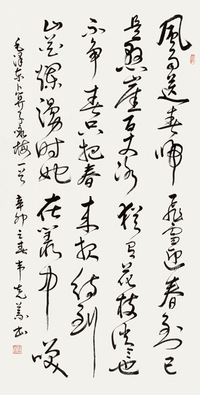 風雨送春歸飛雪迎春到已
是懸崖百丈冰猶有花枝俏俏也
不爭春只把春來報待到
山花爛漫時她在叢中笑
毛澤東卜算子詠梅一首 辛卯之春韦克義书